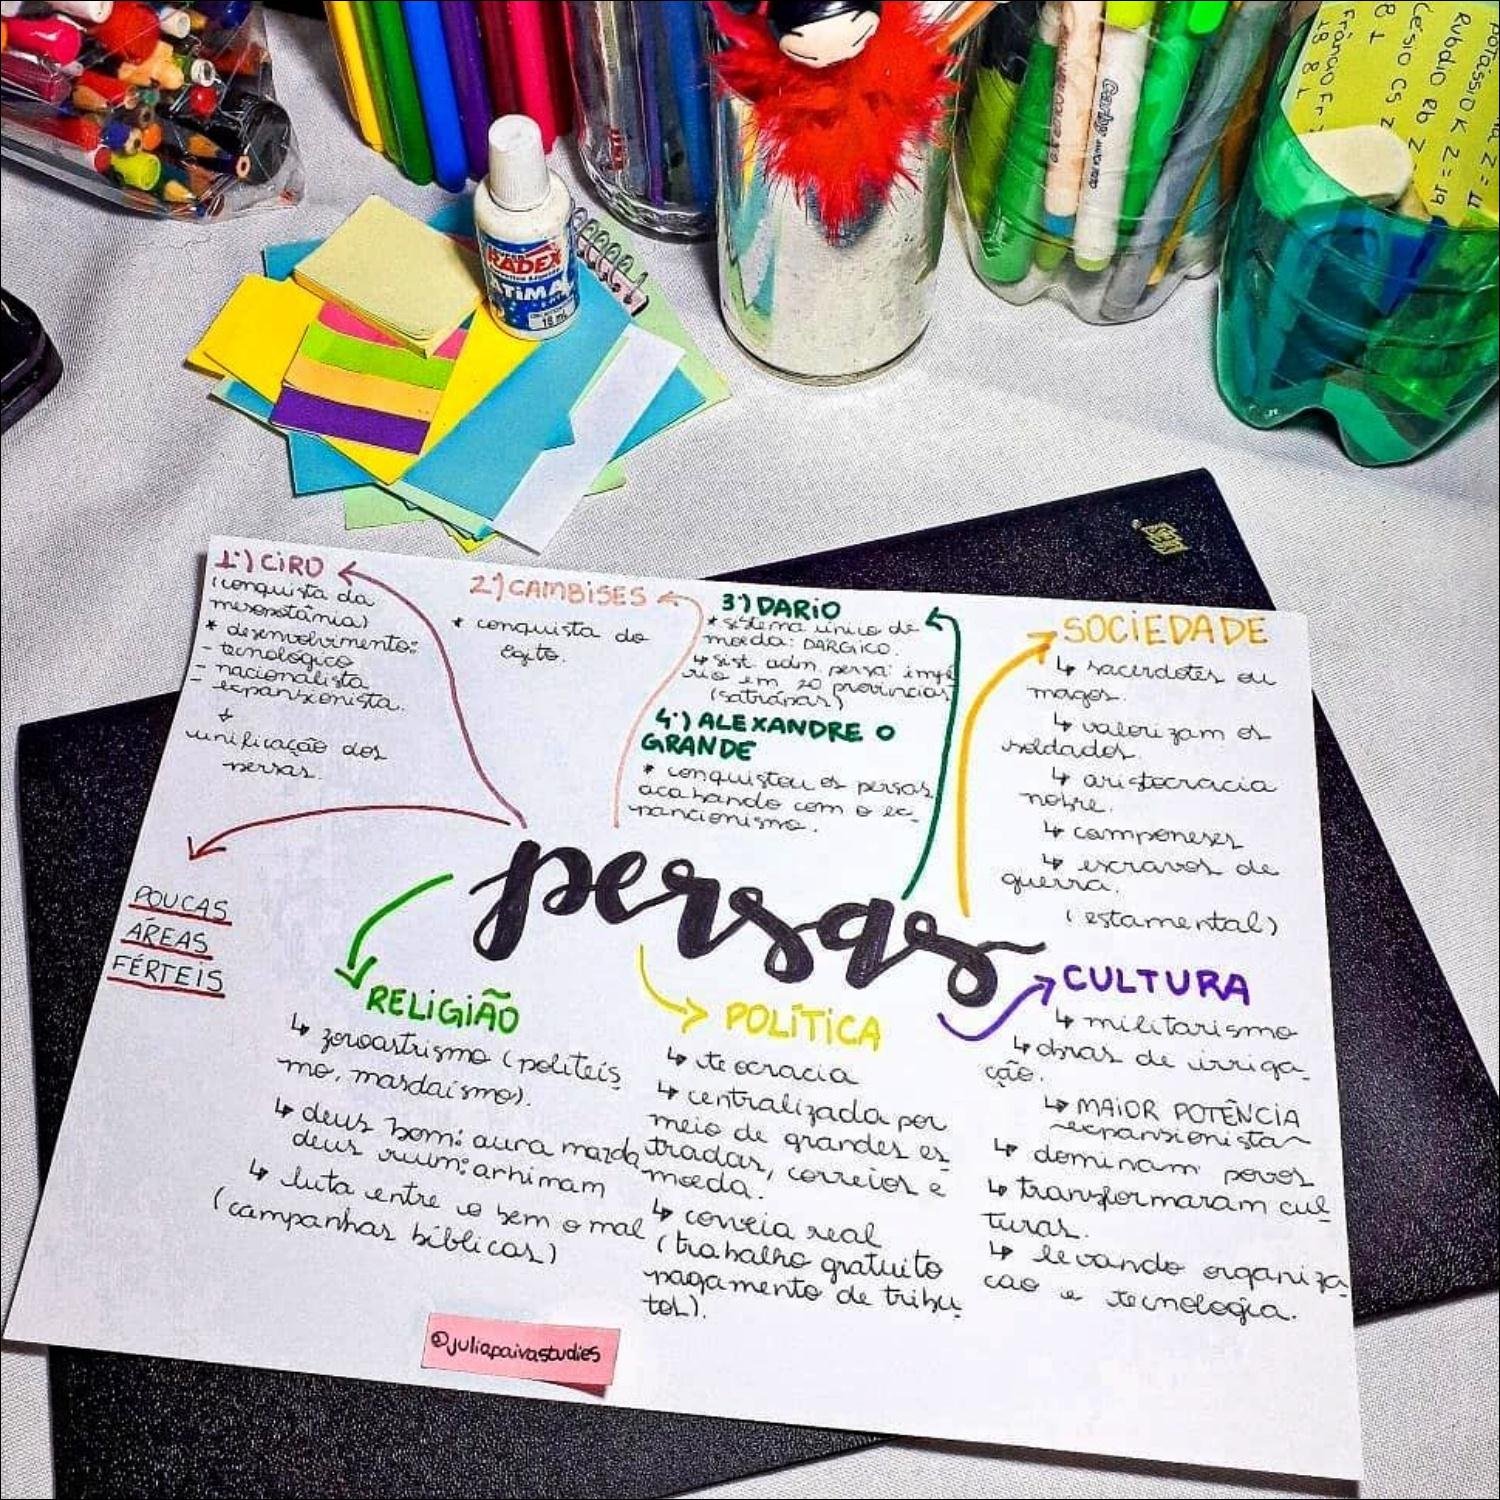 SUPER
RADEX
ÁTIMA
18 mL
POTÁSSIO K Z=19
RUBÍDIO Rb Z=
CÉSIO CS Z
FRÂNCIO Fr
1º) CIRO
(conquista da
mesopotâmia)
* desenvolvimento:
- tecnológico
- nacionalista
- expansionista.
↓
unificação dos
persas.
2º) CAMBISES
* conquista do
Egito.
3º) DARIO
* sistema único de
moeda: DÁRGICO.
↳ sist. adm. persa: impé
rio em 20 províncias
(satrápas)
4º) ALEXANDRE O
GRANDE
* conquistou os persas,
acabando com o ex-
pancionismo.
SOCIEDADE
↳ sacerdotes ou
magos.
↳ valorizam os
soldados.
↳ aristocracia
nobre.
↳ camponeses
↳ escravos de
guerra.
(estamental)
POUCAS
ÁREAS
FÉRTEIS
persas
RELIGIÃO
↳ zoroastrismo (politeís
mo, masdaísmo).
↳ deus bom: aura mazda
deus ruim: arhimam
↳ luta entre o bem o mal
(campanhas bíblicas)
POLÍTICA
↳ teocracia
↳ centralizada por
meio de grandes es_
tradas, correios e
moeda.
↳ corveia real
(trabalho gratuito
pagamento de tribu_
tos).
CULTURA
↳ militarismo
↳ obras de irriga_
ção.
↳ MAIOR POTÊNCIA
~expansionista~
↳ dominam povos
↳ transformaram cul_
turas.
↳ levando organiza_
cao e tecnologia.
@juliapaivastudies